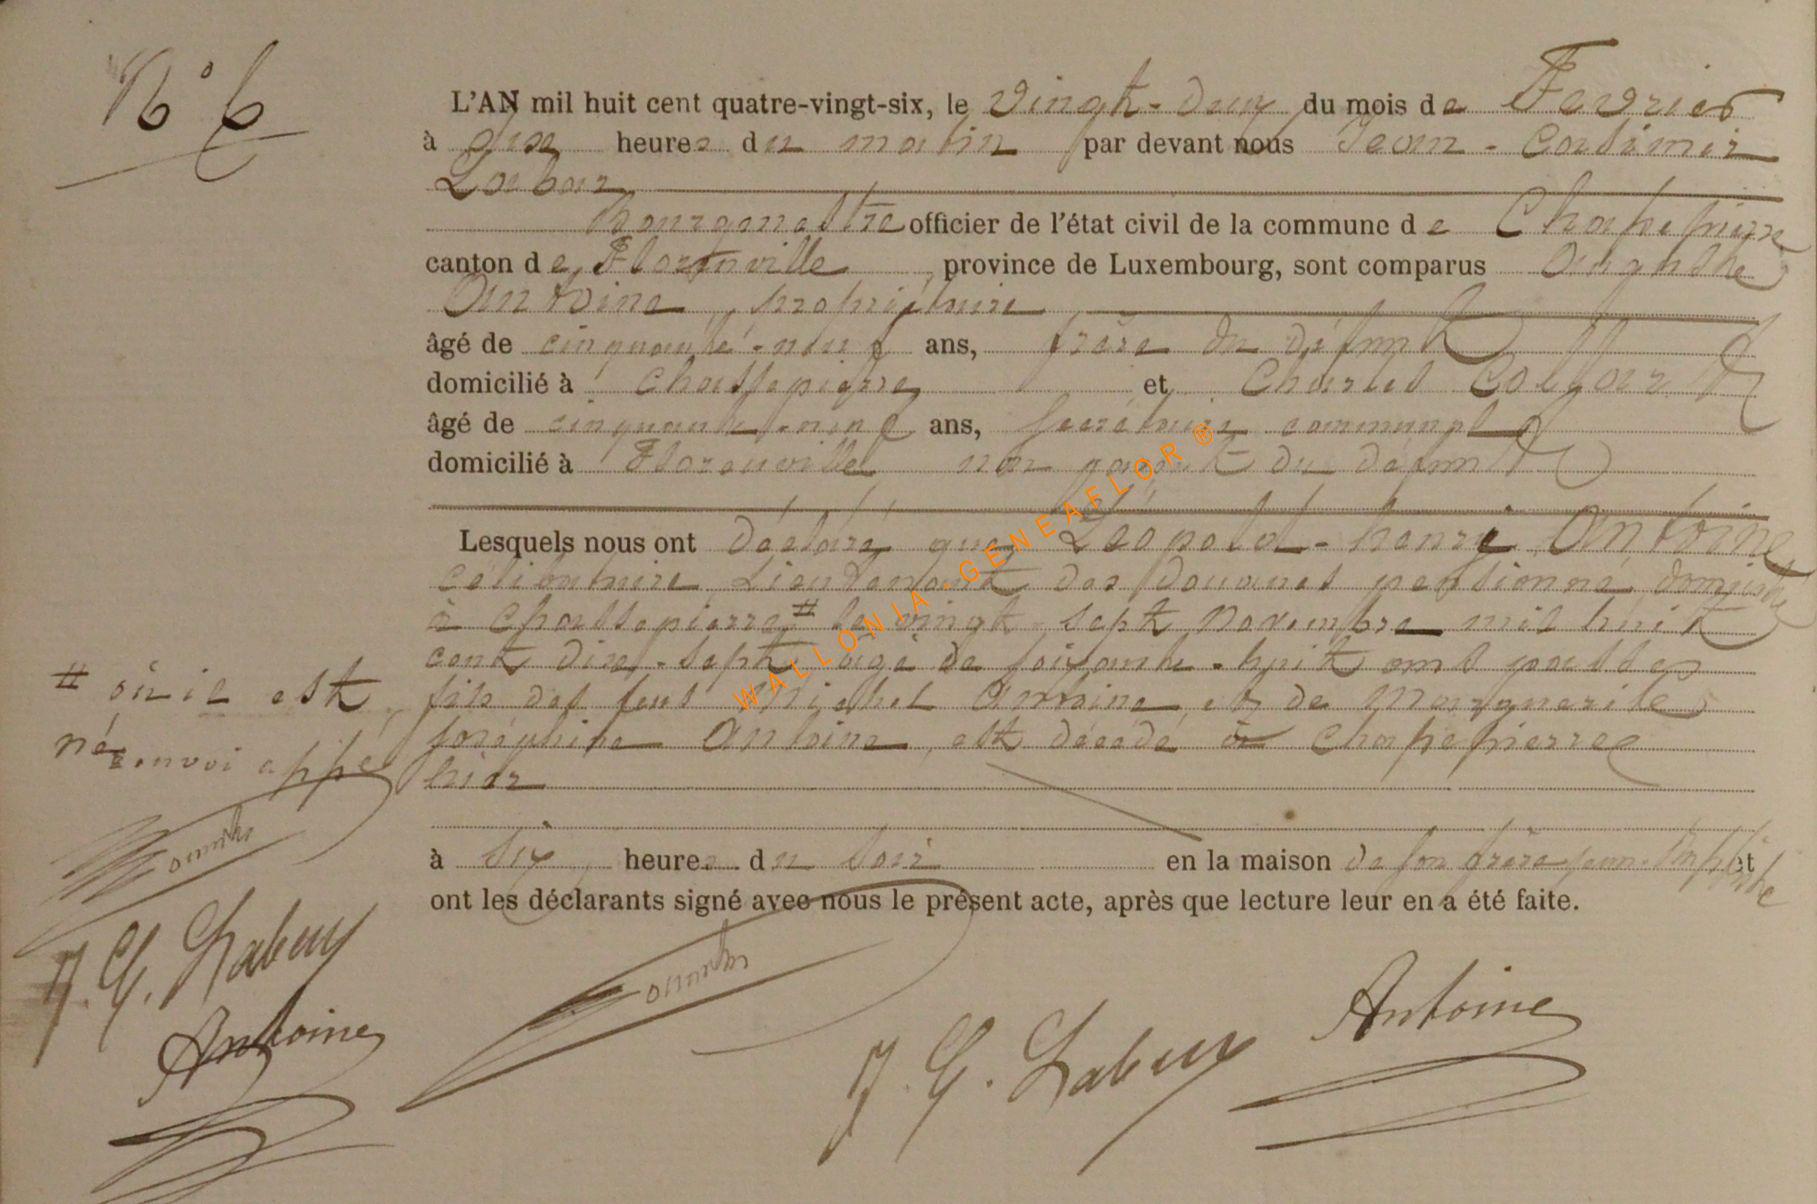 N° 6
L'AN mil huit cent quatre-vingt-six, le vingt-deux du mois de Fevrier
à dix heures du matin par devant nous Jean - Casimir
bourgmestre officier de l'état civil de la commune de Chassepierre
canton de Florenville, province de Luxembourg, sont comparus Auguste
Antoine, propriétaire
âgé de cinquante-neuf ans, frère du défunt
domicilié à Chassepierre et Charles
âgé de cinquante-neuf ans, secrétaire communal
domicilié à Florenville non parent du défunt
Lesquels nous ont déclaré que Léopold-henri Antoine
célibataire Lieutenant des douanes pensionné, domicilié
à Chassepierre # le vingt-sept Novembre mil huit
cent dix-sept âgé de soixante-huit ans passées
# où il est
fils des feus Michel Antoine et de Marguerite
né
joséphine Antoine, est décédé à Chassepierre
renvoi appé
hier
à six heures du soir en la maison de son frère jean-Baptiste et
ont les déclarants signé avec nous le présent acte, après que lecture leur en a été faite.
Antoine
Antoine
WALLONIA - GENEAFLOR ®